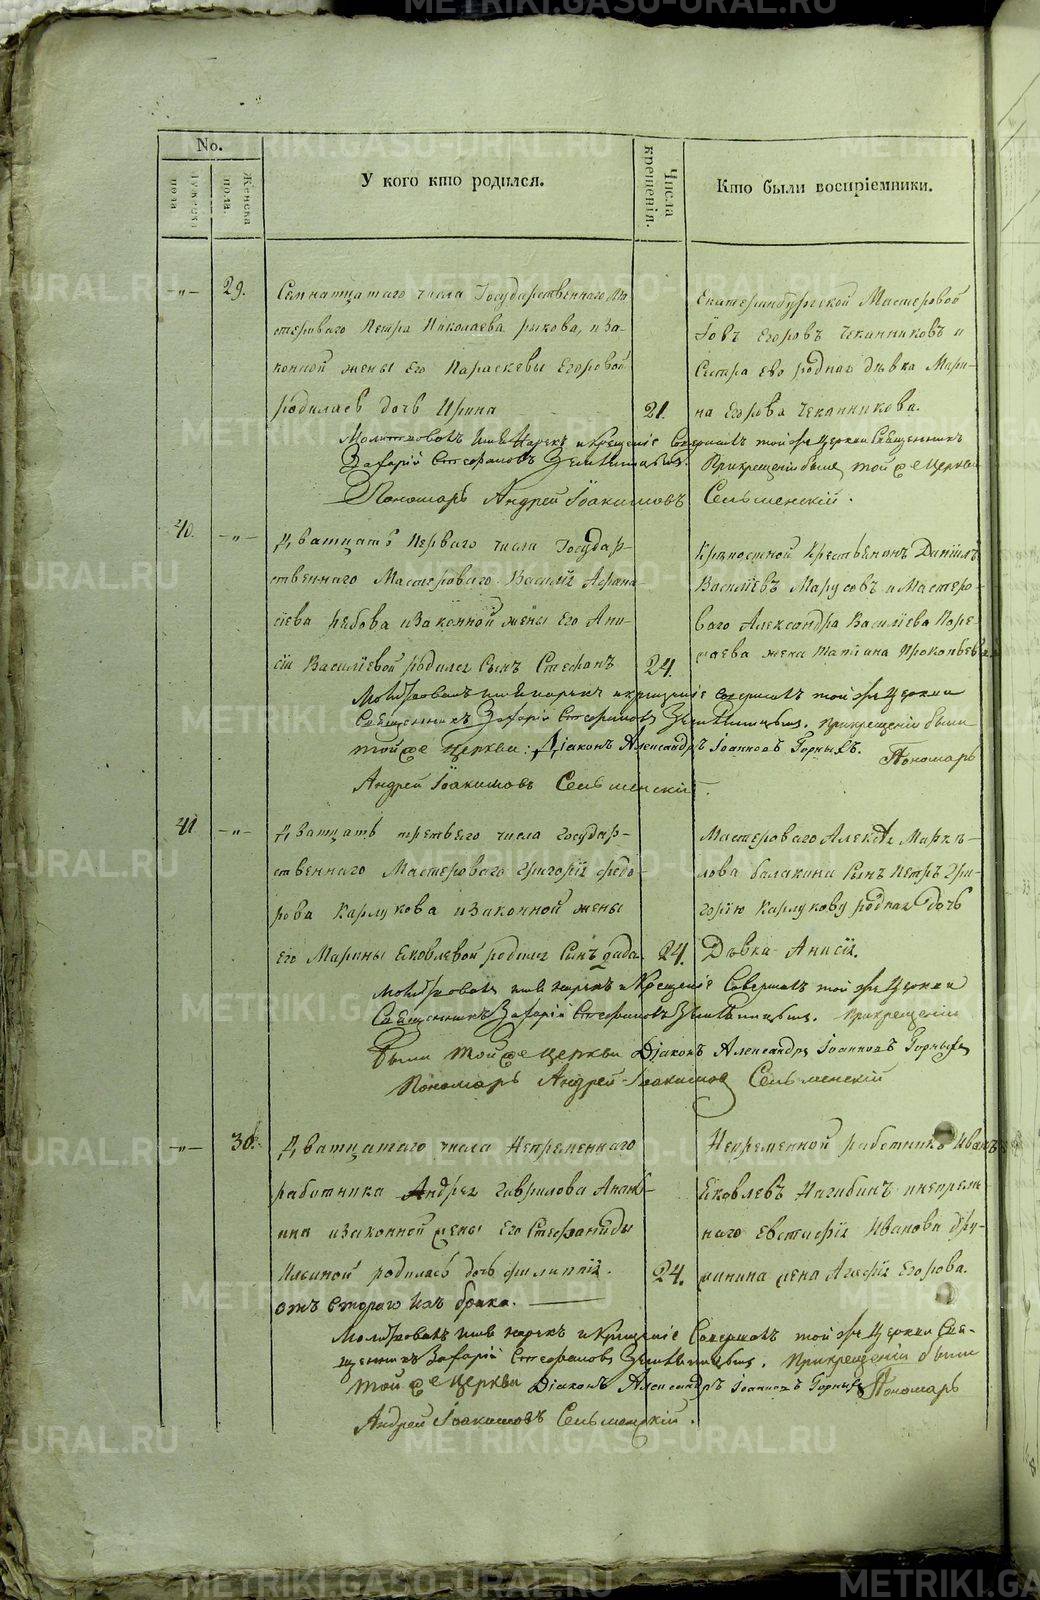 No.
Мужеска пола
Женска пола.
У кого кто родился.
Числа крещенія.
Кто были воспріемники.
-"- 29.
Семнатцатаго числа Государственнаго Ма
стероваго Петра Николаева рыкова, иза
конной жены Его Параскевы Егоровой
родилась дочь Ирина
21.
Екатеринбургской Мастеровой
Іовъ Егоровъ Чеканниковъ и
Сестра ево родная дѣвка Мари-
на Егорова Чеканникова.
Молитвовалъ имя нарекъ и крещеніе Совершалъ той же Церкви Священникъ
Захарій Стефановъ При крещеніи были той же Церкви
Пономарь Андрей Іоакимовъ Сельменскій.
40. -"-
Дватцать Перваго числа Государ-
ственнаго Мастероваго Василія Афана-
сіева изаконной жены Его Ани-
сіи Василіевой родился Сынъ Стефанъ
24.
Крѣпостной Крестьянинъ Даніилъ
Василіевъ Марусовъ и Мастеро-
ваго Александра Василіева
жена Татіана Прокопьева
Молитвовалъ имя нарекъ и крещеніе совершалъ той же Церкви
Священникъ Захарій Стефановъ При крещеніи были
той же Церкви: Діаконъ Александръ Іоанновъ Горныхъ. Пономарь
Андрей Іоакимовъ Сельменскій.
41 -"-
Дватцать третьего числа Государ-
ственнаго Мастероваго Григорія Федо
рова Карлукова изаконной жены
Его Марины Яковлевой родился Сынъ
24.
Мастероваго Алексѣя Маркѣ-
лова балакина Сынъ Петръ Гри-
горію Карлукову родная дочь
Дѣвка Анисія.
Молитвовалъ имя нарекъ и Крещеніе Совершалъ той же Церкви
Священникъ Захарій Стефановъ При крещеніи
были той же Церкви Діаконъ Александръ Іоанновъ Горныхъ
Пономарь Андрей Іоакимовъ Сельменскій
-"- 30.
Дватцатаго числа Непременнаго
работника Андрея Гаврилова Анань-
ина изаконной жены Его Стефаниды
Ильиной родилась дочь филиппія.
отъ втораго ихъ брака.
24.
Непременной работникъ Иванъ
Яковлевъ Нагибинъ инепрем-
наго Евстафія Иванова
жена Агафія Егорова.
Молитвовалъ имя нарекъ и Крещеніе Совершалъ той же Церкви Свя-
щенникъ Захарій Стефановъ При крещеніи были
той же Церкви Діаконъ Александръ Іоанновъ Горныхъ Пономарь
Андрей Іоакимовъ Сельменскій.
METRIKI.GASO-URAL.RU